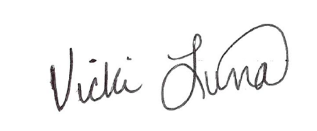 Vicki Luna